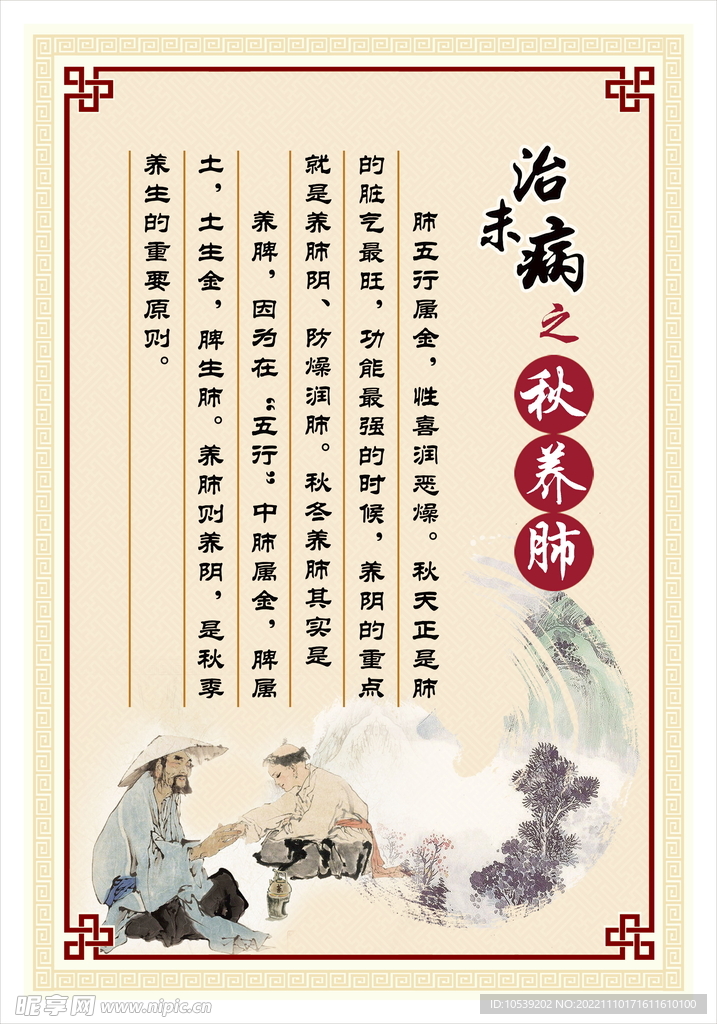 治未病之秋养肺
肺五行属金，性喜润恶燥。秋天正是肺
的脏气最旺，功能最强的时候，养阴的重点
就是养肺阴、防燥润肺。秋冬养肺其实是
养脾，因为在“五行”中肺属金，脾属
土，土生金，脾生肺。养肺则养阴，是秋季
养生的重要原则。
昵享网 www.nipic.cn
ID:10539202 NO:20221110171611610100